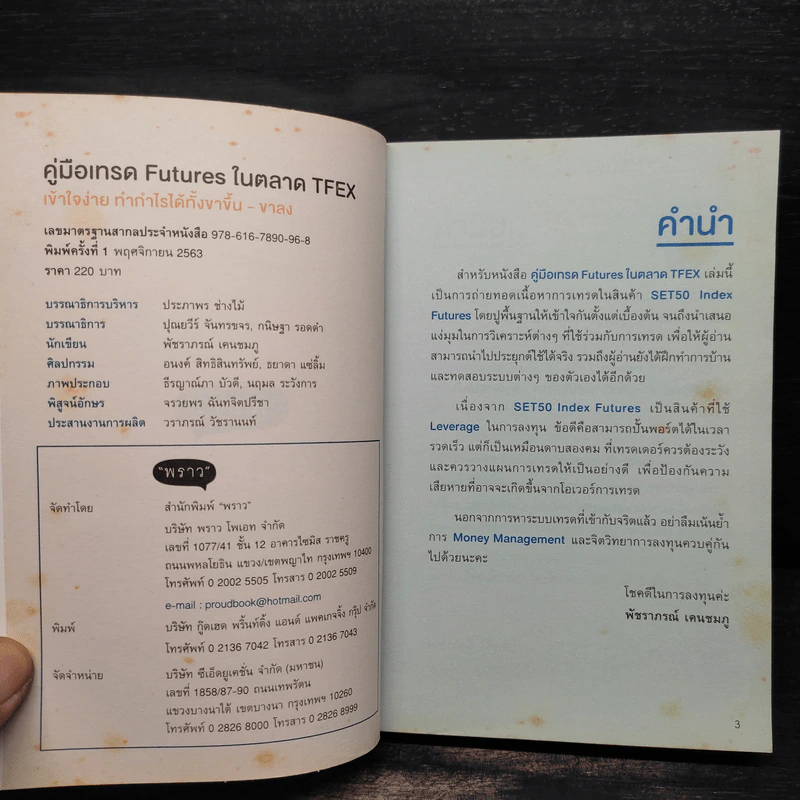 คู่มือเทรด Futures ในตลาด TFEX
เข้าใจง่าย ทำกำไรได้ทั้งขาขึ้น - ขาลง
เลขมาตรฐานสากลประจำหนังสือ 978-616-7890-96-8
พิมพ์ครั้งที่ 1 พฤศจิกายน 2563
ราคา 220 บาท
บรรณาธิการบริหาร ประภาพร ช่างไม้
บรรณาธิการ ปุณยวีร์ จันทรขจร, กนิษฐา รอดดำ
นักเขียน พัชราภรณ์ เคนชมภู
ศิลปกรรม อนงค์ สิทธิสินทรัพย์, ธยาดา แซ่ลิ้ม
ภาพประกอบ ธีรญาณ์ภา บัวดี, นฤมล ระวังการ
พิสูจน์อักษร จรวยพร ฉันทจิตปรีชา
ประสานงานการผลิต วราภรณ์ วัชรานนท์
“พราว”
จัดทำโดย สำนักพิมพ์ “พราว”
บริษัท พราว โพเอท จำกัด
เลขที่ 1077/41 ชั้น 12 อาคารไซมิส ราชครู
ถนนพหลโยธิน แขวง/เขตพญาไท กรุงเทพฯ 10400
โทรศัพท์ 0 2002 5505 โทรสาร 0 2002 5509
e-mail : proudbook@hotmail.com
พิมพ์ บริษัท กู๊ดเฮด พริ้นท์ติ้ง แอนด์ แพคเกจจิ้ง กรุ๊ป จำกัด
โทรศัพท์ 0 2136 7042 โทรสาร 0 2136 7043
จัดจำหน่าย บริษัท ซีเอ็ดยูเคชั่น จำกัด (มหาชน)
เลขที่ 1858/87-90 ถนนเทพรัตน
แขวงบางนาใต้ เขตบางนา กรุงเทพฯ 10260
โทรศัพท์ 0 2826 8000 โทรสาร 0 2826 8999
คำนำ
สำหรับหนังสือ คู่มือเทรด Futures ในตลาด TFEX เล่มนี้
เป็นการถ่ายทอดเนื้อหาการเทรดในสินค้า SET50 Index
Futures โดยปูพื้นฐานให้เข้าใจกันตั้งแต่เบื้องต้น จนถึงนำเสนอ
แง่มุมในการวิเคราะห์ต่างๆ ที่ใช้ร่วมกับการเทรด เพื่อให้ผู้อ่าน
สามารถนำไปประยุกต์ใช้ได้จริง รวมถึงผู้อ่านยังได้ฝึกทำการบ้าน
และทดสอบระบบต่างๆ ของตัวเองได้อีกด้วย
เนื่องจาก SET50 Index Futures เป็นสินค้าที่ใช้
Leverage ในการลงทุน ข้อดีคือสามารถปั้นพอร์ตได้ในเวลา
รวดเร็ว แต่ก็เป็นเหมือนดาบสองคม ที่เทรดเดอร์ควรต้องระวัง
และควรวางแผนการเทรดให้เป็นอย่างดี เพื่อป้องกันความ
เสียหายที่อาจจะเกิดขึ้นจากโอเวอร์การเทรด
นอกจากการหาระบบเทรดที่เข้ากับจริตแล้ว อย่าลืมเน้นย้ำ
การ Money Management และจิตวิทยาการลงทุนควบคู่กัน
ไปด้วยนะคะ
โชคดีในการลงทุนค่ะ
พัชราภรณ์ เคนชมภู
3